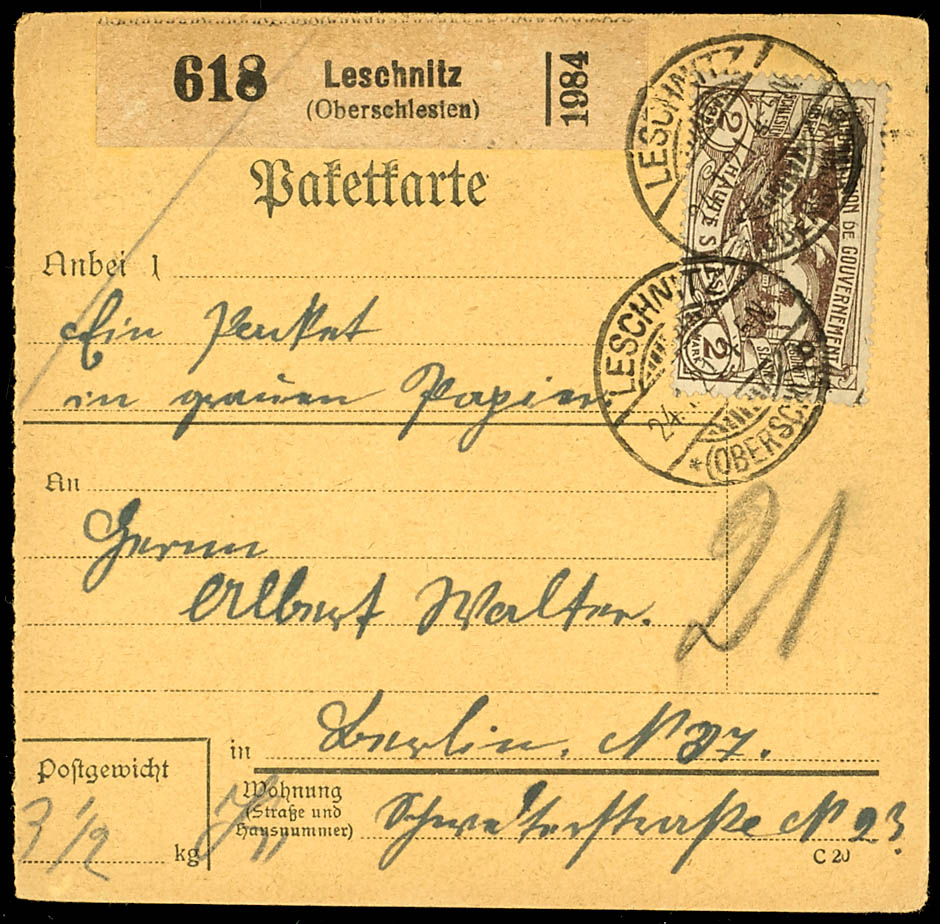 618 Leschnitz 1984
(Oberschlesien)
Paketkarte
Anbei 1
Ein Paket
in grauen Papier
An
Herrn
Albert Walter.
21
in Berlin. N 37.
Postgewicht
3 1/2 kg
Wohnung
(Straße und
Hausnummer)
Schwedterstraße N 23
C 20
LESCHNITZ
LESCHNITZ
24.
* (OBERSCHL
COMMISSION DE GOUVERNEMENT
HAUTE SILÉSIE
2 MARK
2 MARK